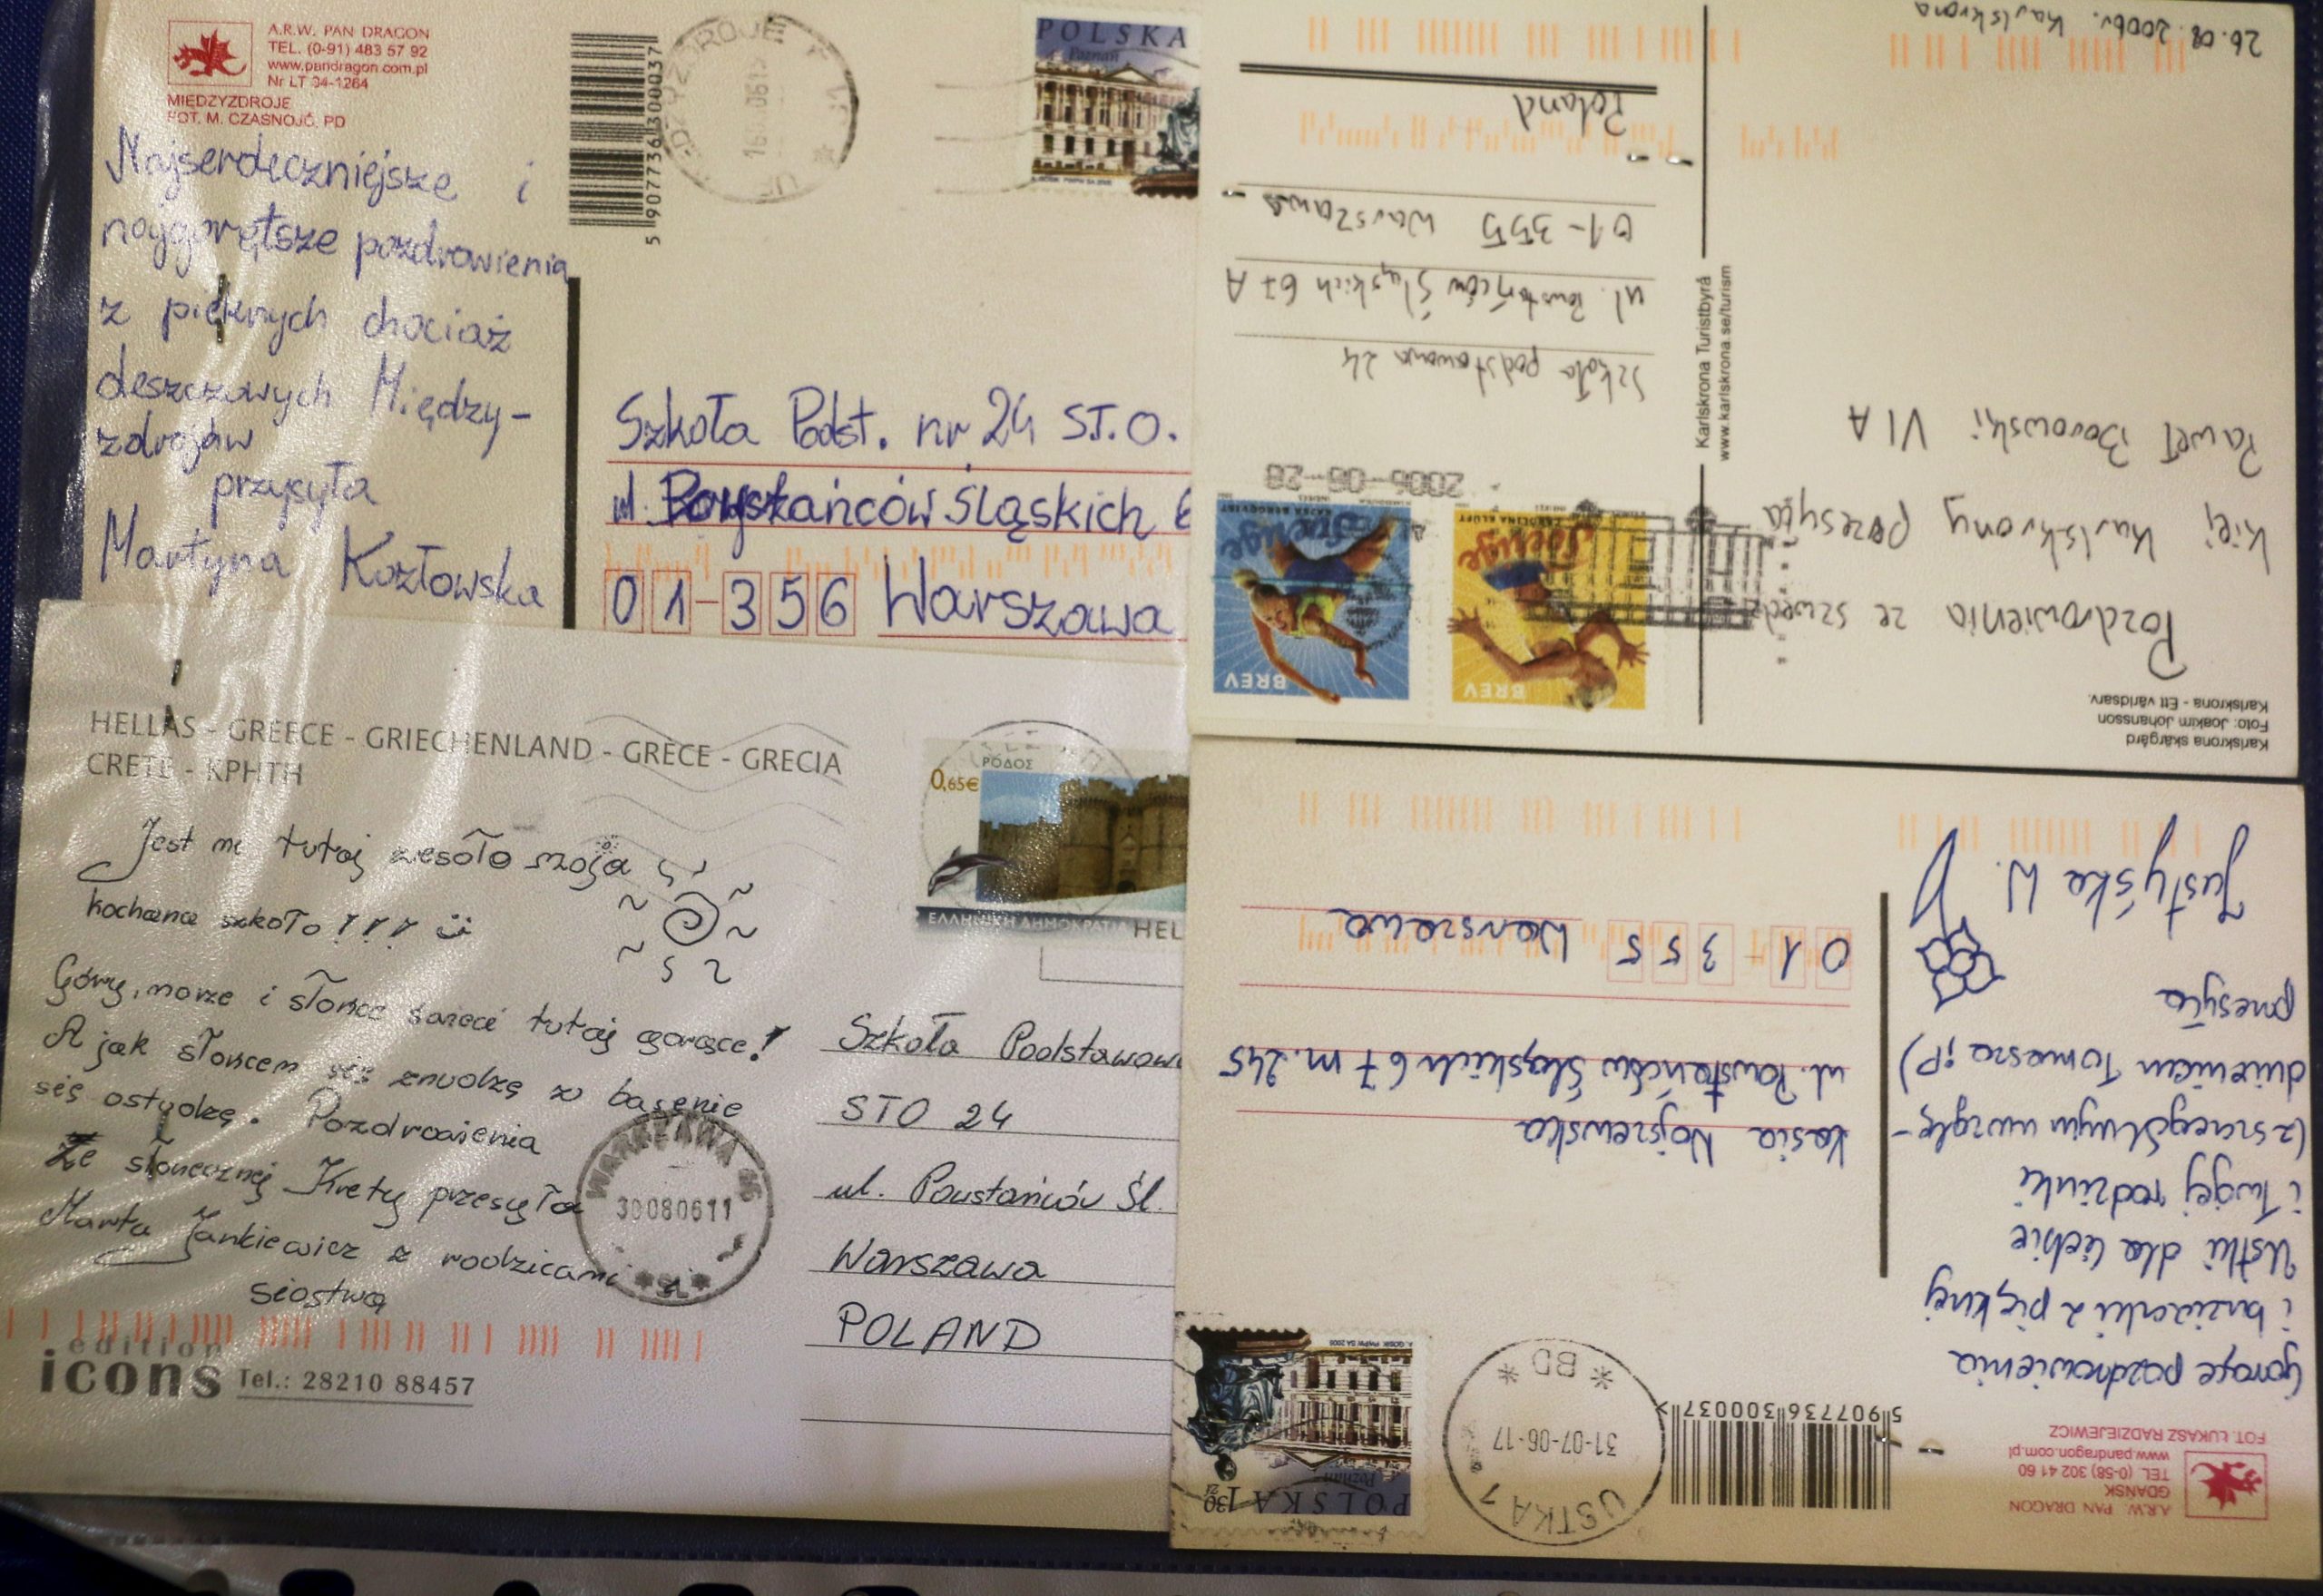 A.R.W. PAN DRAGON
TEL. (0-91) 483 57 92
www.pandragon.com.pl
Nr LT 04-1264
MIĘDZYZDROJE
FOT. M. CZASNOJĆ, PD
Najserdeczniejsze i
najgorętsze pozdrowienia
z pięknych chociaż
deszczowych Między-
zdrojów
przysyła
Martyna Kozłowska
5 907736 300037
POLSKA
Poznań
Szkoła Podst. nr 24 ST.O.
ul. Powstańców Śląskich 6
01-356 Warszawa
HELLAS - GREECE - GRIECHENLAND - GRECE - GRECIA
CRETE - ΚΡΗΤΗ
Jest mi tutaj wesóło moja
kochana szkoło!!!
Góry, morze i słońce świeci tutaj gorące!
A jak słońcem się znudzę w basenie
się ostudzę. Pozdrowienia
Ze słonecznej Krety przesyła
Marta Jankiewicz z rodzicami i
siostrą
edition
icons Tel.: 28210 88457
WARSZAWA
30080611
ΡΟΔΟΣ
0,65€
ΕΛΛΗΝΙΚΗ ΔΗΜΟΚΡΑΤΙΑ HEL
Szkoła Podstawowa
STO 24
ul. Powstańców Śl.
Warszawa
POLAND
Karlskrona skärgård
Foto: Joakim Johansson
Karlskrona - Ett världsarv.
Pozdrowienia ze szwedz
kiej Karlskrony przesyła
Paweł Borowski VI A
26.08.2006r. Karlskrona
Karlskrona Turistbyrå
www.karlskrona.se/turism
BREV
Sverige
CAROLINA KLUFT
BREV
Sverige
KAJSA BERGQVIST
2006-08-28
Szkoła podstawowa 24
ul. Powstańców Śląskich 67 A
01-355 Warszawa
Poland
A.R.W. PAN DRAGON
GDAŃSK
TEL. (0-58) 302 41 60
www.pandragon.com.pl
FOT. ŁUKASZ RADZIEJEWICZ
5 907736 300037
Gorące pozdrowienia
i buziaczki z pięknej
Ustki dla Ciebie
i Twojej rodzinki
(z szczególnym uwzglę-
dnieniem Tomasza ;P)
przesyła
Justyśka W.
USTKA 1
31-07-06-17
* BD *
POLSKA
1,30 zł
Poznań
Kasia Najszewska
ul. Powstańców Śląskich 67 m. 245
01-355 Warszawa